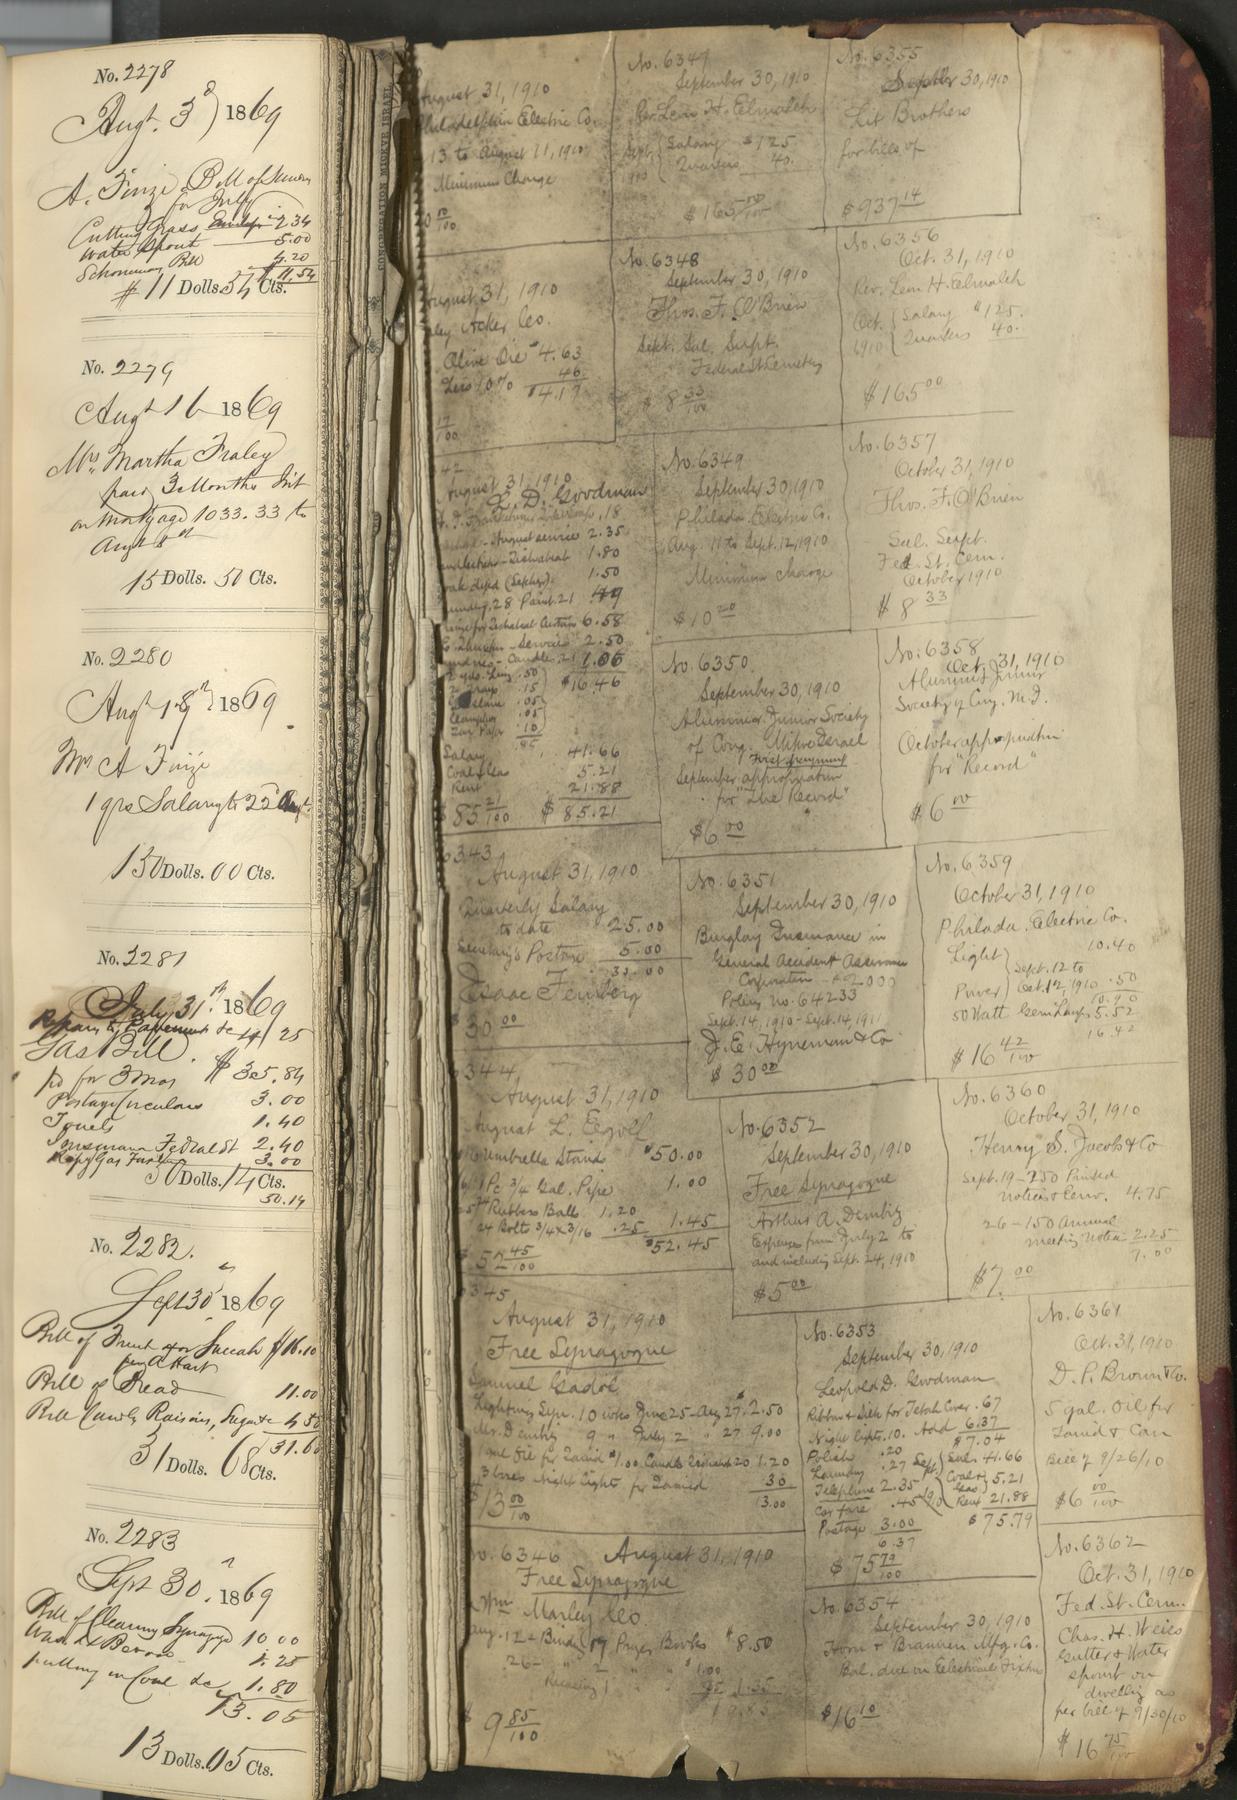 No. 2278
Augt. 3d 1869
A. Finzi Bill of
for July
Cutting Grass 2.34
Water Spout 5.00
Schoneman Bill 4.20
$11.54
$11 Dolls. 54 Cts.
No. 2279
Augt 16 1869
Mrs. Martha Fraley
paid 3 Months Int
on Mortgage 1033.33 to
Augt 8th
15 Dolls. 50 Cts.
No. 2280
Augt 18th 1869
Mr A Finzi
1 qrs Salary to 25 Augt
150 Dolls. 00 Cts.
No. 2281
July 31st 1869
Repairs to Pavement &c 25
Gas Bill
pd for 3 mos $35.84
Postage Circulars 3.00
Towels 1.40
Insurance Federal St 2.40
3.00
50 Dolls. 14 Cts.
50.14
No. 2282.
Sept 30 1869
Bill of Fruit for Succah $16.10
Bill of Bread 11.00
Bill Candy Raisins, Sugar &c 4 58
31.68
31 Dolls. 68 Cts.
No. 2283
Sept 30. 1869
Bill of Cleaning Synagoge 10 00
1.25
putting in Coal &c 1.80
13.05
13 Dolls. 05 Cts.
CONGREGATION MICKVE ISRAEL
August 31, 1910
Philadelphia Electric Co.
13 to August 11, 1910
Minimum Charge
August 31, 1910
Acker Co.
Olive Oil $4.63
Less 10% 46
$4.17
17/100
42
August 31, 1910
L. D. Goodman
August service 2.35
1.80
1.50
6.58
Services 2.50
Candle 1.06
$16.46
Salary 41.66
Coal & Gas 5.21
Rent 21.88
$85 21/100 $85.21
6343
August 31, 1910
Quarterly Salary
to date 25.00
Secretary's Postage 5.00
30.00
Isaac Feinberg
30 00
6344
August 31, 1910
August L.
Umbrella Stand $50.00
1 Pc 3/4 Gal. Pipe 1.00
Rubber Balls 1.20
24 Bolts 3/4 x 3/16 .25 1.45
$52.45
$52 45/100
6345
August 31, 1910
Free Synagogue
Samuel Gadol
Lighting Syn. 10 wks June 25-Aug 27. 2.50
Dembitz 9 " July 2 " 27 9.00
gal Oil for Tamid $1.00 Candle 20 1.20
3 boxes night lights for Tamid 30
13.00
$13 00/100
No. 6346 August 31, 1910
Free Synagogue
Wm Marley & Co
Aug. 12 - Bind'g 17 Prayer Books $8.50
26- 2 " " $1.00
1.35
$9 85/100
No. 6347
September 30, 1910
Rev. Leon H. Elmaleh
Sept. 1910 { Salary $125
Quarters 40.
$165 00/100
No. 6348
September 30, 1910
Thos. F. O'Brien
Sept. Sal. Supt.
Federal St. Cemetery
$8 33/100
No. 6349
September 30, 1910
Philada. Electric Co.
Aug. 11 to Sept. 12, 1910
Minimum charge
No. 6350
September 30, 1910
Alumniae Junior Society
of Cong. Mikve Israel
First payment
September appropriation
for "The Record"
$6 00
No. 6351
September 30, 1910
Burglary Insurance in
General Accident Assurance
Corporation - $2000
Policy No. 64233
Sept. 14, 1910 - Sept. 14, 1911
J. E. Hyneman & Co
$30 00
No. 6352
September 30, 1910
Free Synagogue
Arthur A. Dembitz
Expenses from July 2 to
and including Sept. 24, 1910
$5 00
No. 6353
September 30, 1910
Leopold D. Goodman
Ribbon & Silk for Tebah Cover .67
Night lights .10. Add 6.37
$7.04
Polish .20
Laundry .27 Sept. { Sal. 41.66
Telephone 2.35 Coal & Gas 5.21
Car fare .45 Rent 21.88
Postage 3.00 $75.79
6.37
$75 79/100
No. 6354
September 30, 1910
Horn & Brannen Mfg. Co.
Bal. due on Electrical Fixtures
$16 10
No. 6355
September 30, 1910
Lit Brothers
for bills of
$937 14
No. 6356
Oct. 31, 1910
Rev. Leon H. Elmaleh
Oct. 1910 { Salary $125.
Quarters 40.
$165 00
No. 6357
October 31, 1910
Thos. F. O'Brien
Sal. Supt.
Fed. St. Cem.
October 1910
$8 33
No. 6358
Oct. 31, 1910
Alumni Junior
Society of Cong. M. I.
October appropriation
for "Record"
$6 00
No. 6359
October 31, 1910
Philada. Electric Co.
Light } 10.40
Sept. 12 to
Power } Oct. 12, 1910 .50
10.90
50 Watt Gem Lamps 5.52
16.42
$16 42/100
No. 6360
October 31, 1910
Henry S. Jacobs & Co
Sept. 19 - 250 Printed
notices & Env. 4.75
26 - 150 Annual
meeting notices 2.25
7.00
$7. 00
No. 6361
Oct. 31, 1910
D. P. Brown & Co.
5 gal. Oil for
Tamid & Can
Bill of 9/26/10
$6 00/100
No. 6362
Oct. 31, 1910
Fed. St. Cem.
Chas. H. Weiss
Gutter & Water
spout on
dwelling as
per bill of 9/30/10
$16 75/100